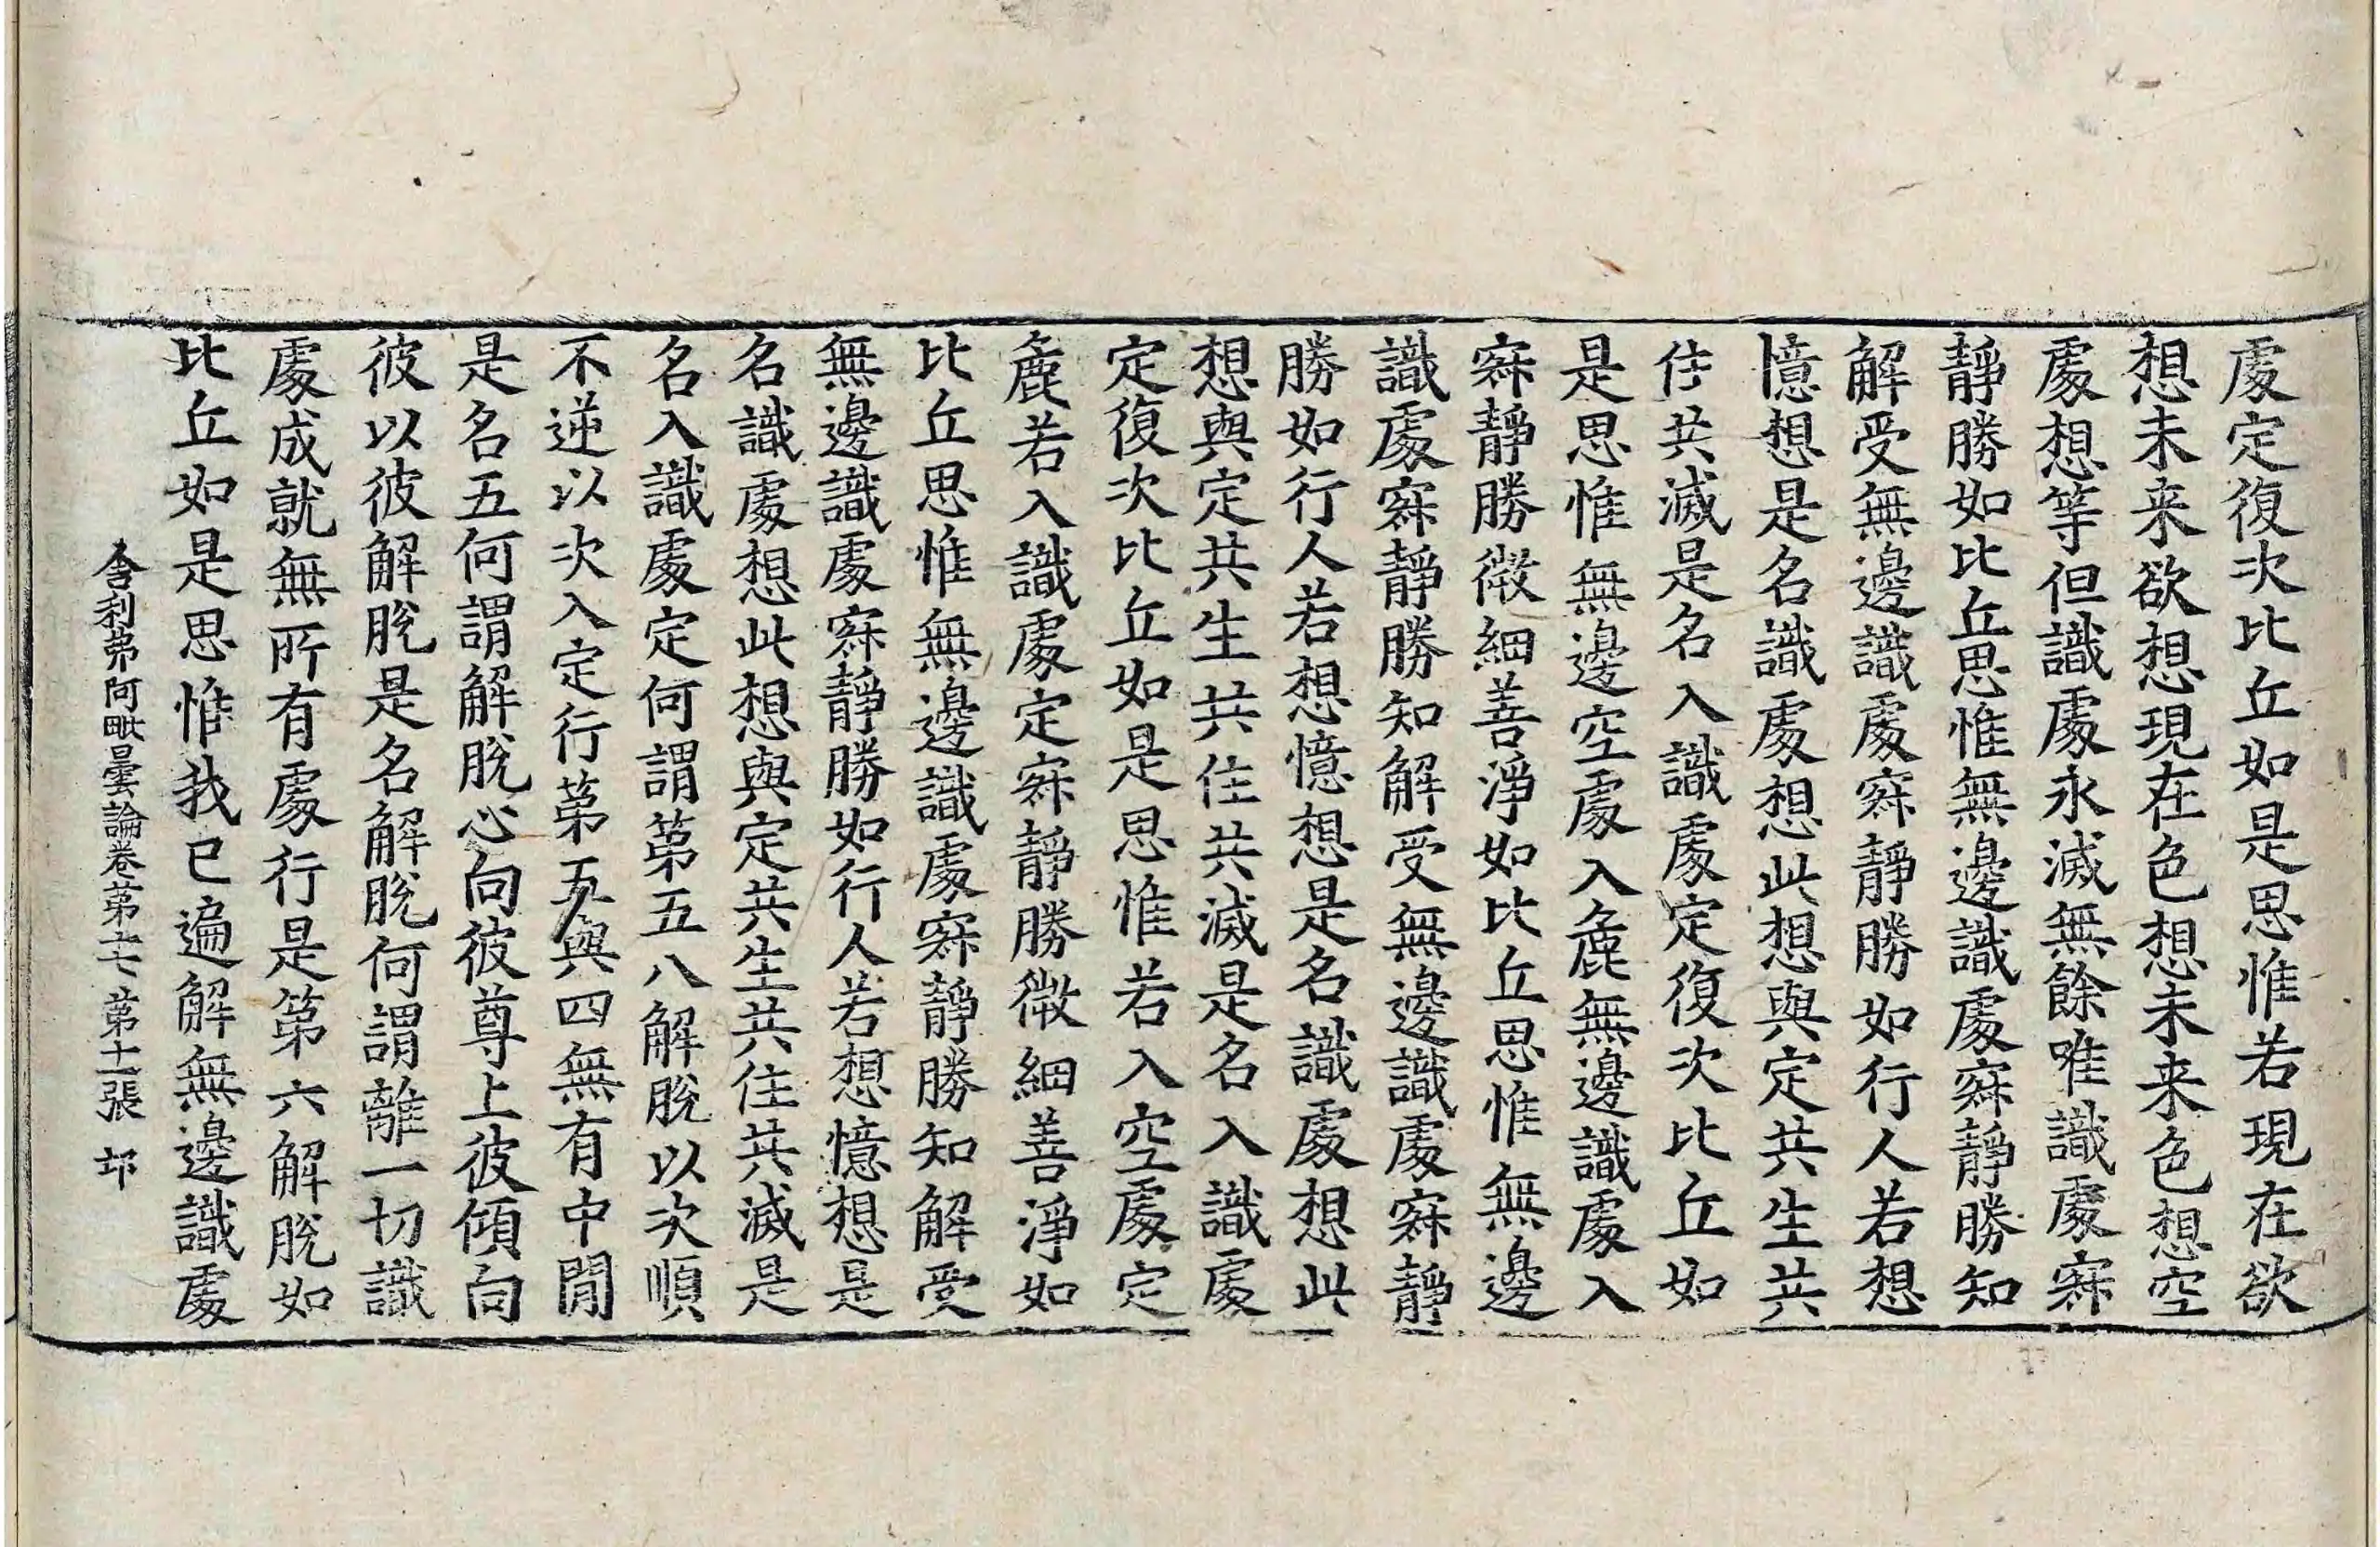 處定復次比丘如是思惟若現在欲
想未来欲想現在色想未来色想空
處想等但識處永滅無餘唯識處寂
靜勝如比丘思惟無邊識處寂靜勝知
解受無邊識處寂靜勝如行人若想
憶想是名識處想此想與定共生共
住共滅是名入識處定復次比丘如
是思惟無邊空處入麁無邊識處入
寂靜勝微細善淨如比丘思惟無邊
識處寂靜勝知解受無邊識處寂靜
勝如行人若想憶想是名識處想此
想與定共生共住共滅是名入識處
定復次比丘如是思惟若入空處定
麁若入識處定寂靜勝微細善淨如
比丘思惟無邊識處寂靜勝知解受
無邊識處寂靜勝如行人若想憶想是
名識處想此想與定共生共住共滅是
名入識處定何謂第五八解脫以次順
不逆以次入定行第五與四無有中間
是名五何謂解脫心向彼尊上彼傾向
彼以彼解脫是名解脫何謂離一切識
處成就無所有處行是第六解脫如
比丘如是思惟我已遍解無邊識處
舍利弗阿毗曇論卷第十七 第十二張 邙